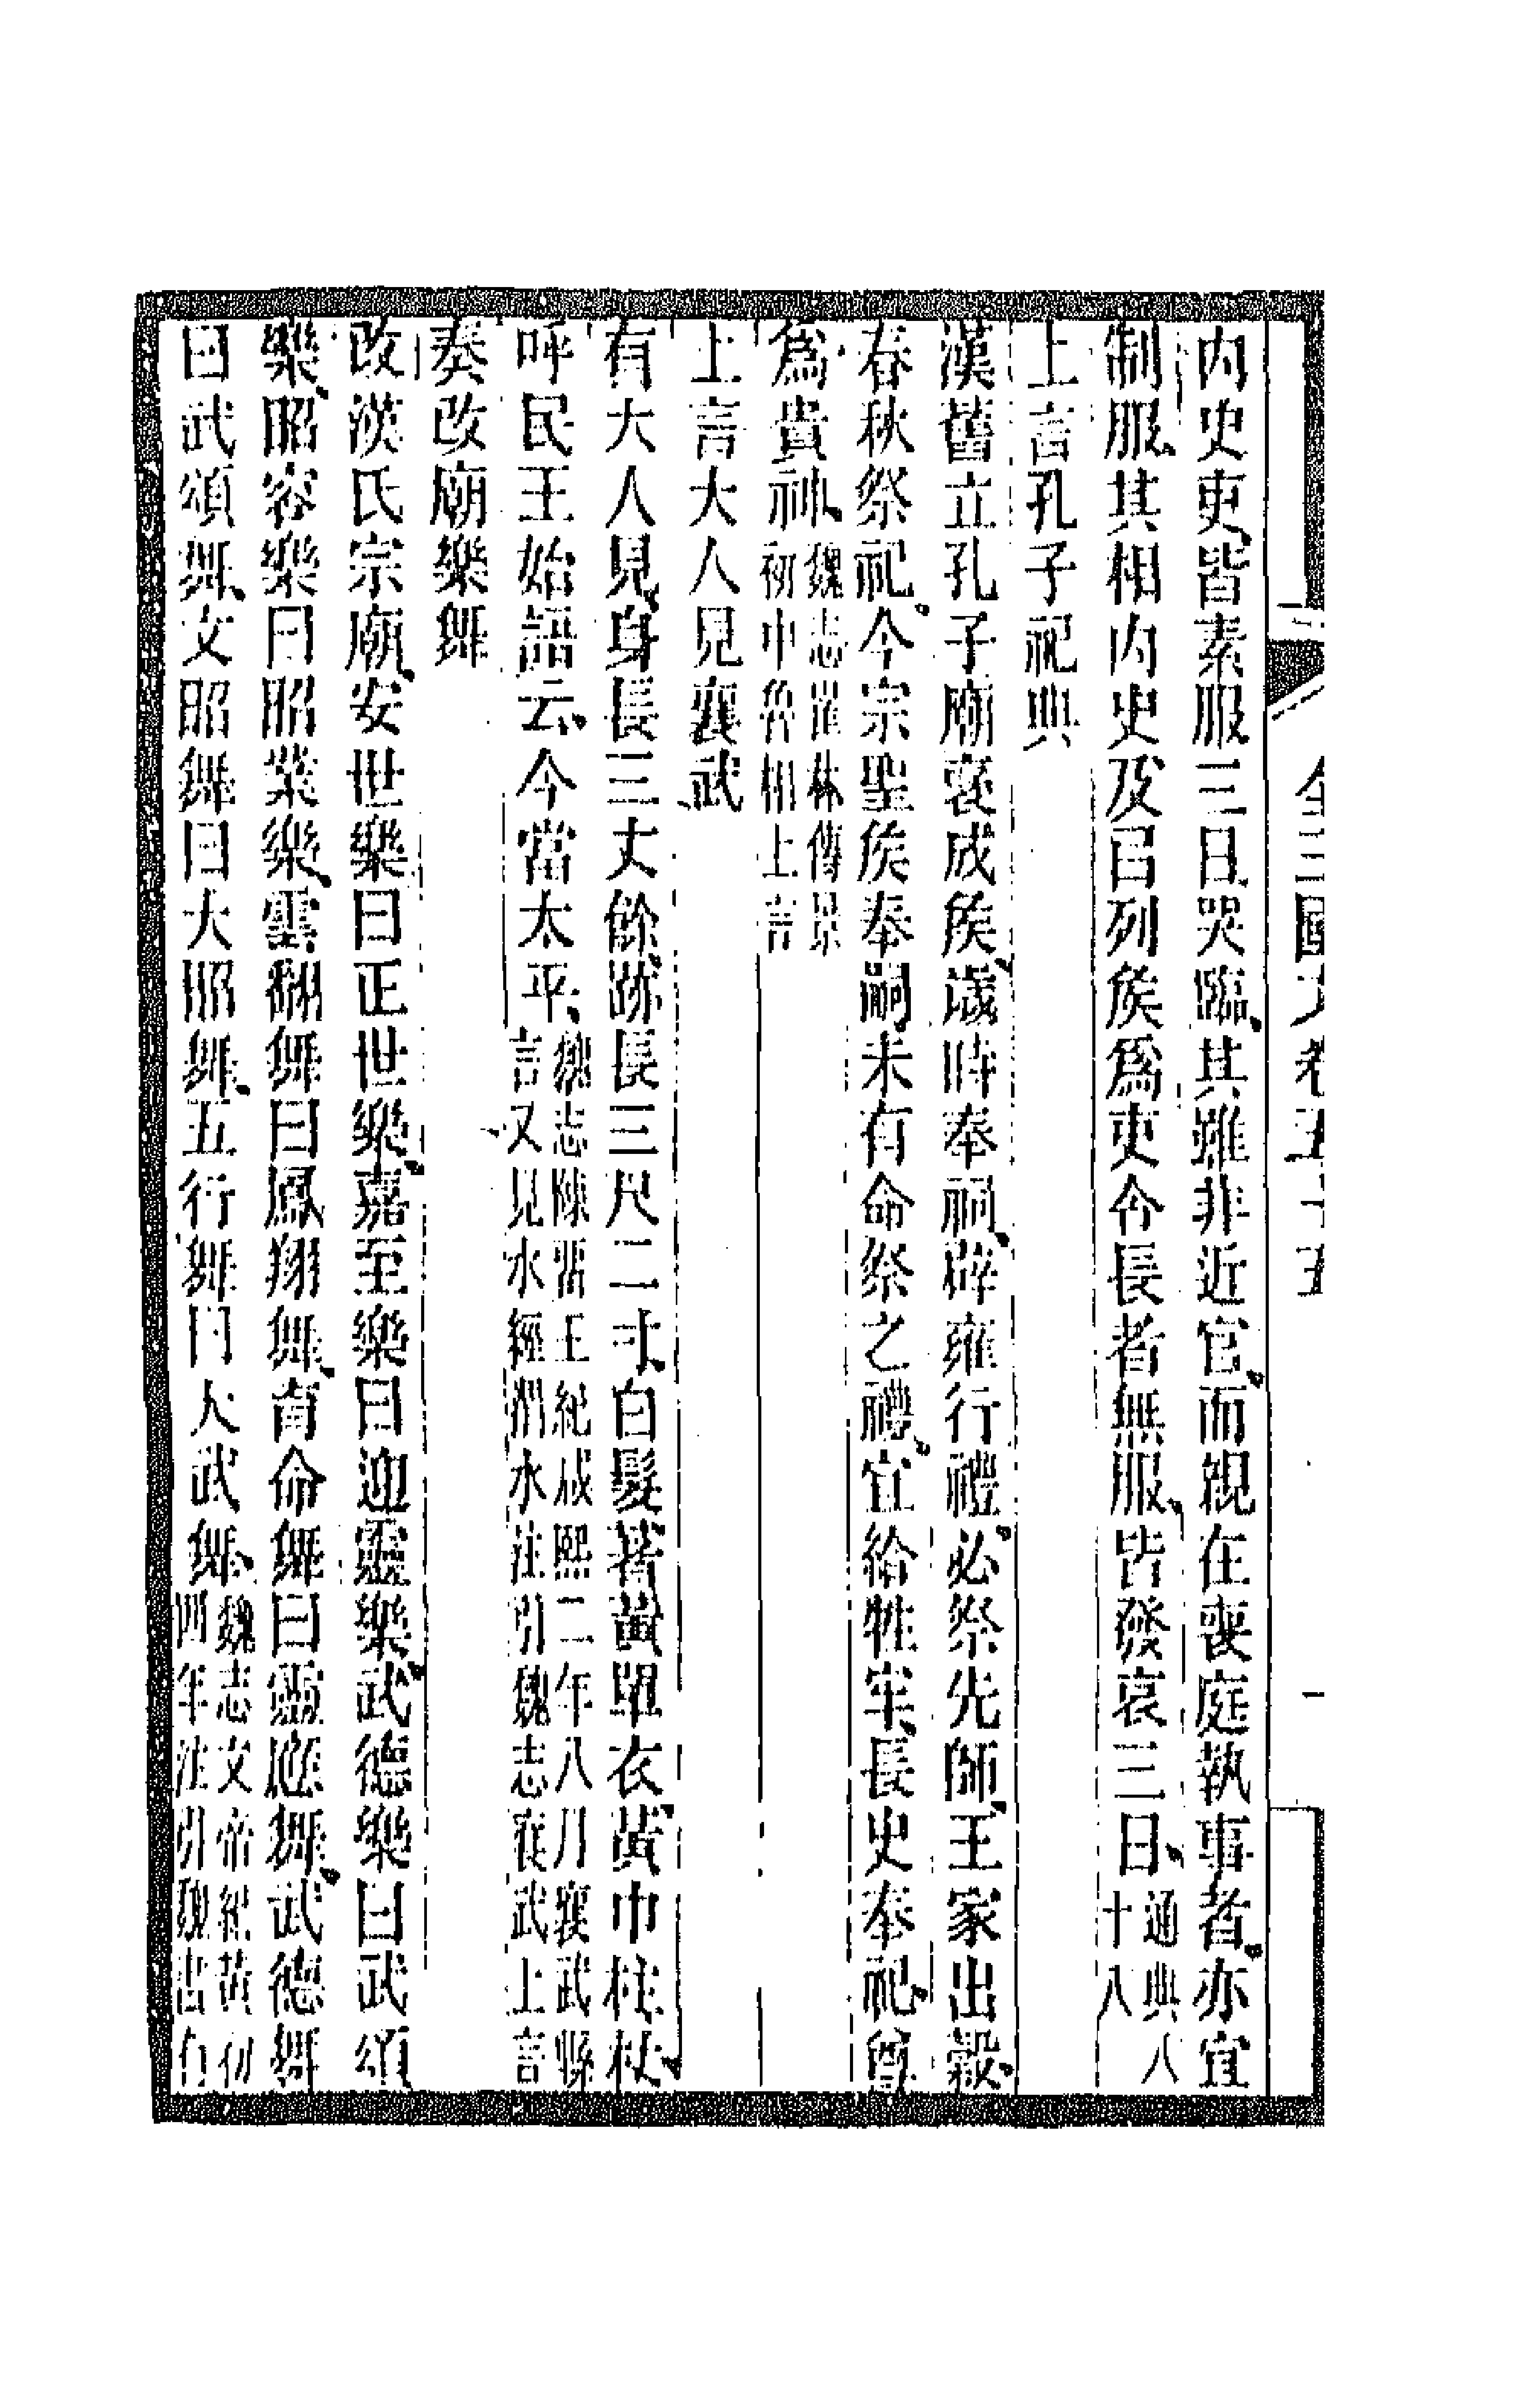 全三國文卷五十五　一
內史吏皆素服三日哭臨其雖非近官而親在喪庭執事者亦宜
制服其相內史及㠯列矦爲吏令長者無服皆發哀三日通典八
十八
上言孔子祀典
漢舊立孔子廟襃成矦歲時奉祠辟雍行禮必祭先師王家出穀
春秋祭祀今宗聖矦奉嗣未有命祭之禮宜給牲牢長史奉祀尊
爲貴神魏志崔林傳景
初中魯相上言
上言大人見襄武
有大人見身長三丈餘跡長三尺二寸白髮著黃單衣黃巾柱杖
呼民王始語云今當太平魏志陳畱王紀咸熙二年八月襄武縣
言又見水經渭水注引魏志襄武上言
奏改廟樂舞
改漢氏宗廟安世樂曰正世樂嘉至樂曰迎靈樂武德樂曰武頌
樂昭容樂曰昭業樂雲翻舞曰鳳翔舞育命舞曰靈應舞武德舞
曰武頌舞文昭舞曰大昭舞五行舞曰大武舞魏志文帝紀黃初
四年注引魏書有